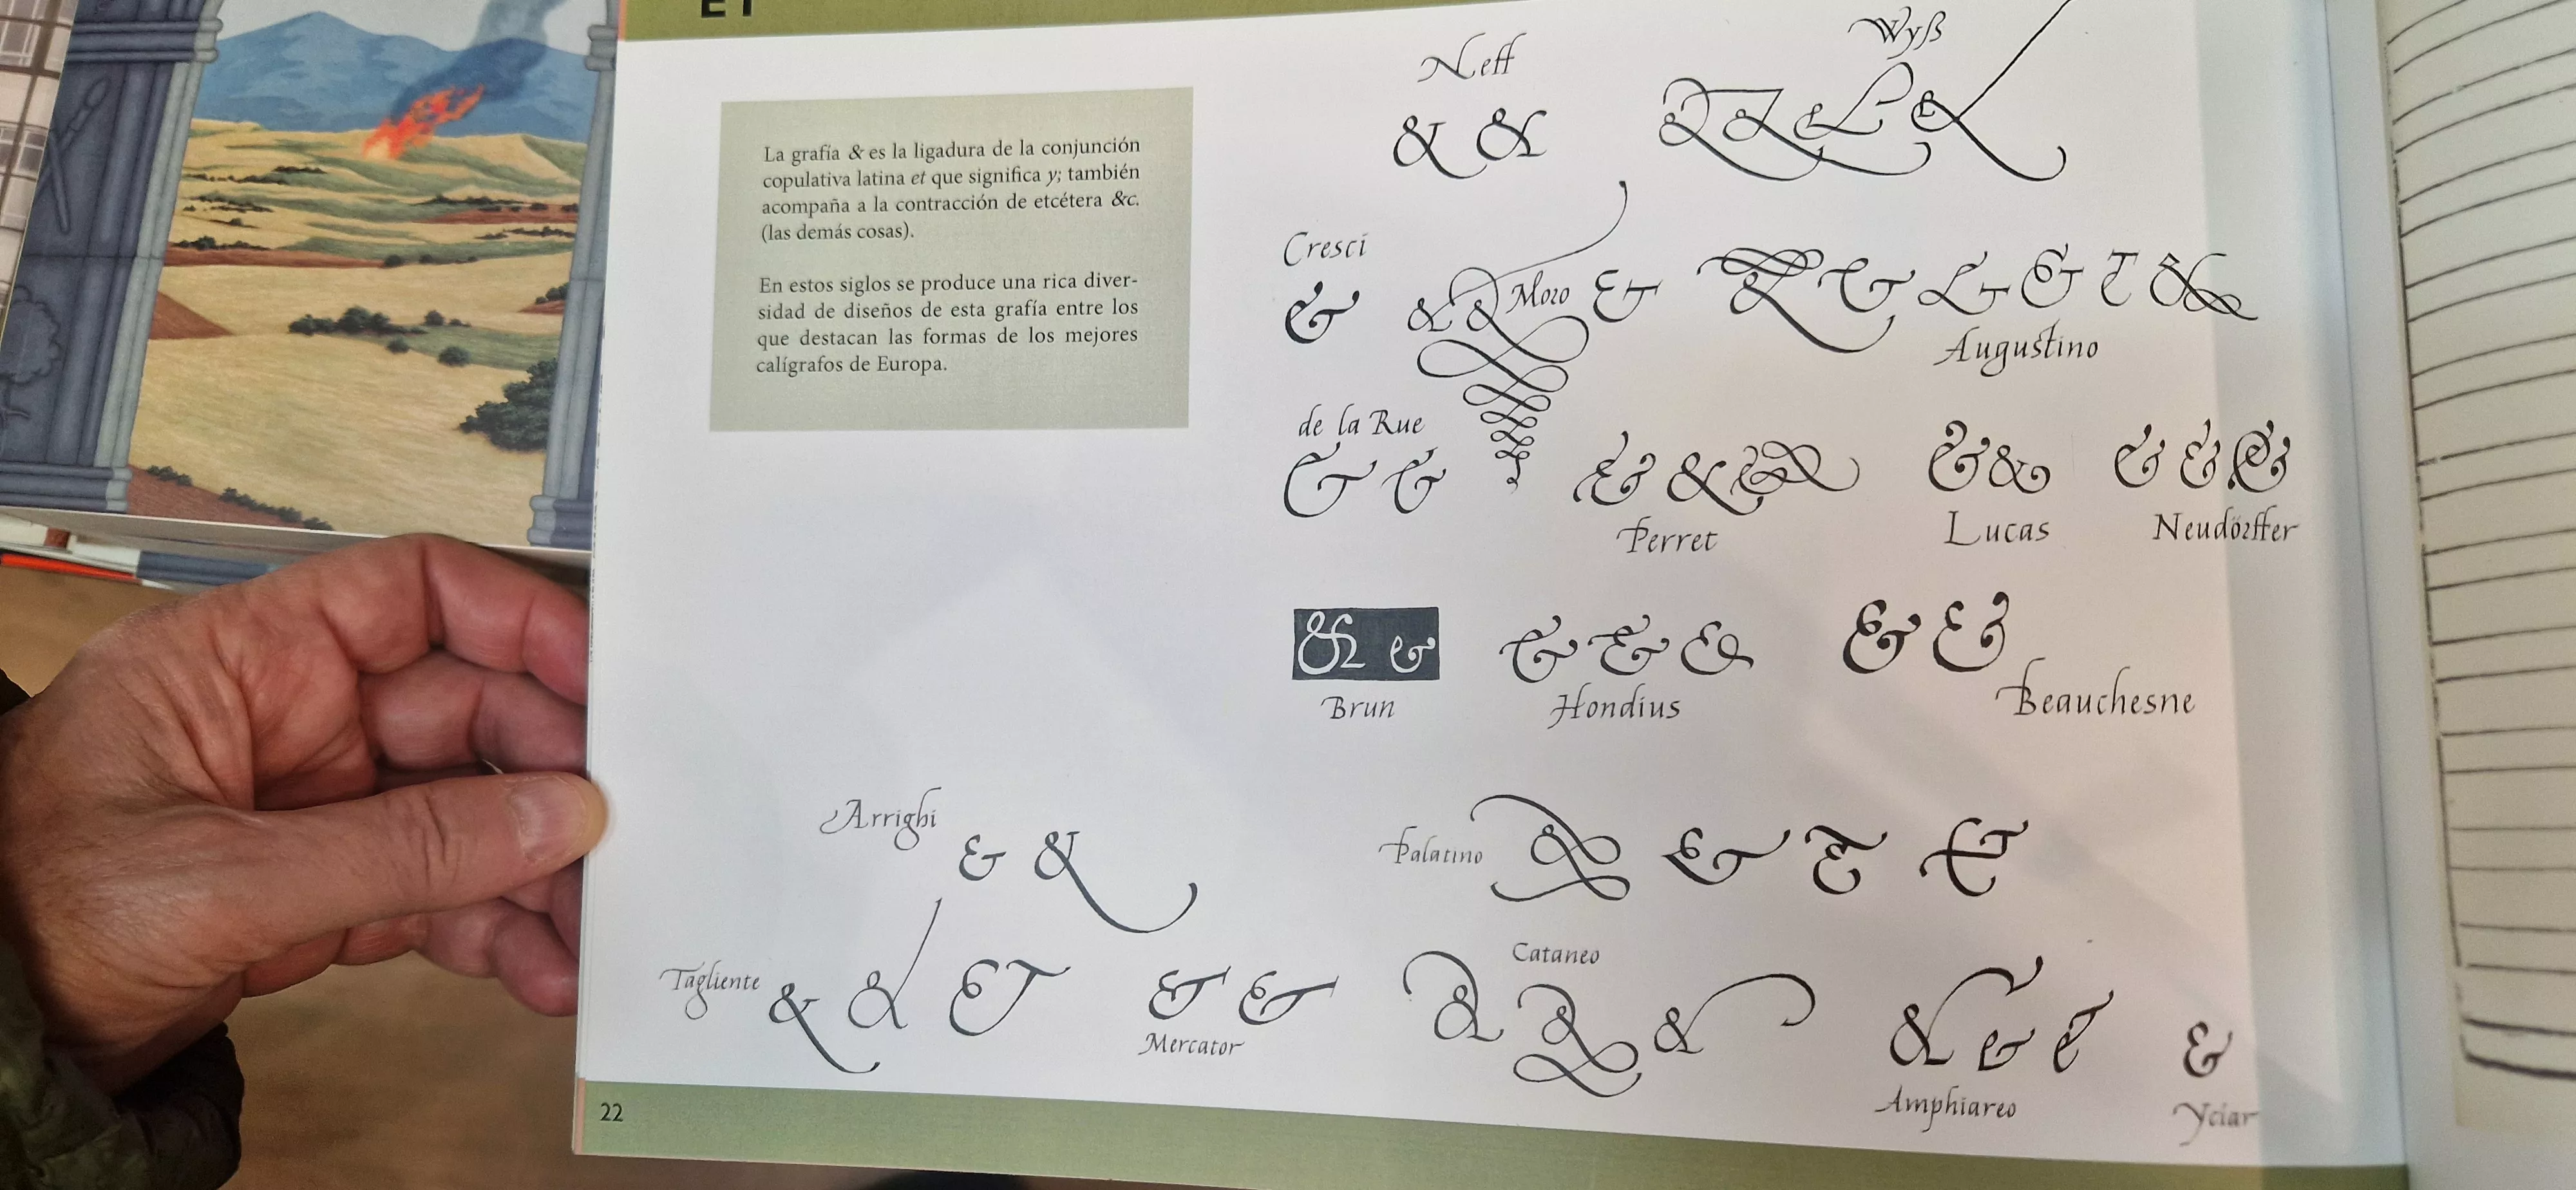 ET
La grafía & es la ligadura de la conjunción
copulativa latina et que significa y; también
acompaña a la contracción de etcétera &c.
(las demás cosas).
En estos siglos se produce una rica diver-
sidad de diseños de esta grafía entre los
que destacan las formas de los mejores
calígrafos de Europa.
Neff
& &
Wyß
& & & &
Cresci
&
& &
Moro
&
& & & & & &
Augustino
de la Rue
& &
& & &
Perret
& &
Lucas
& & &
Neudörffer
& &
Brun
& & &
Hondius
& &
Beauchesne
Arrighi
& &
Palatino
& & & &
Tagliente
& & &
& &
Mercator
Cataneo
& & &
& & &
Amphiareo
&
Yciar
22